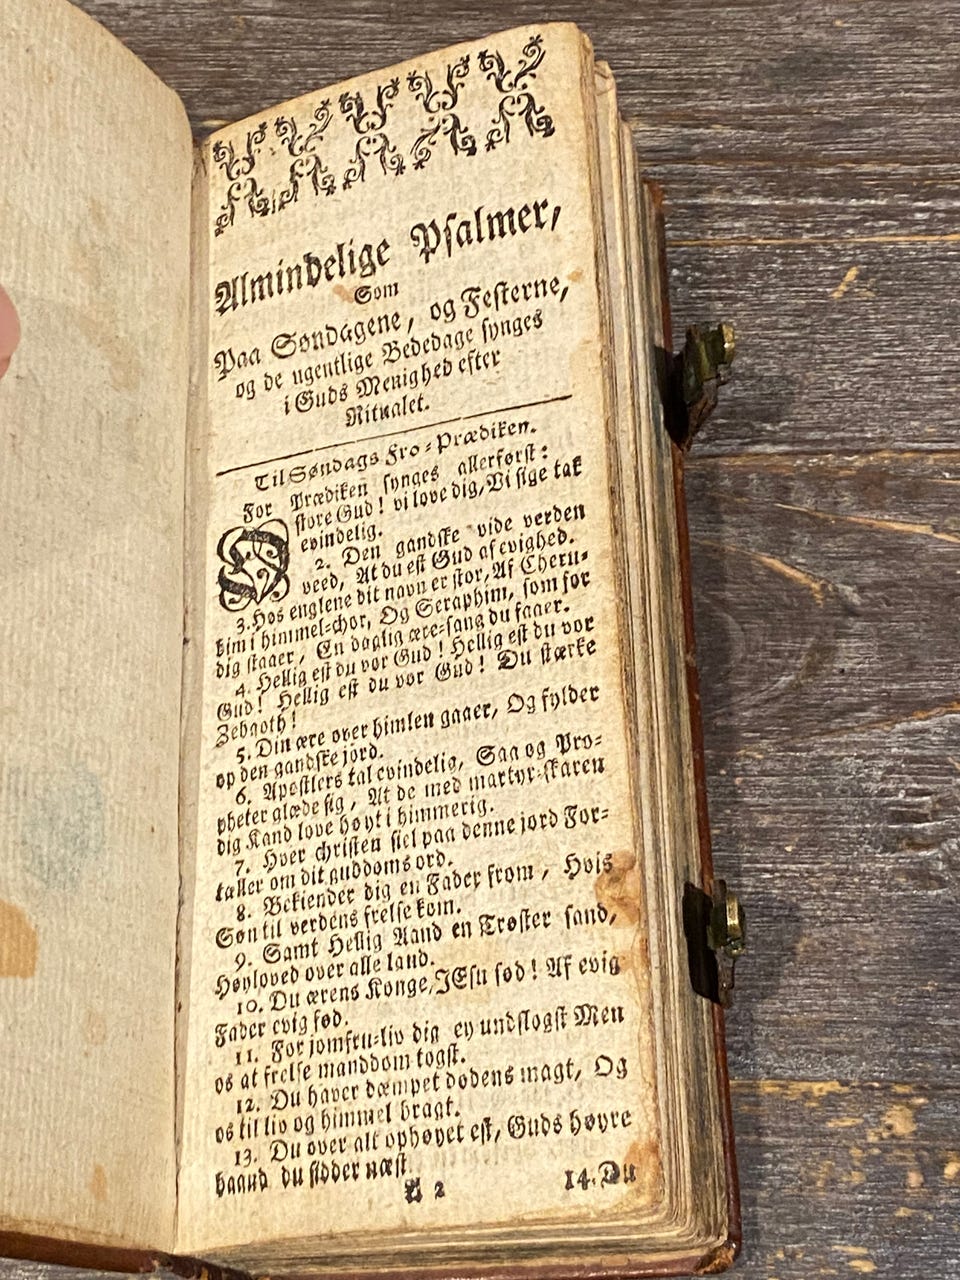 Almindelige Psalmer,
Som
Paa Søndagene, og Festerne,
og de ugentlige Bededage synges
i Guds Menighed efter
Ritualet.
Til Søndags Fro-Prædiken.
For Prædiken synges allerførst:
O store Gud! vi love dig, Vi sige tak
evindelig.
2. Den gandske vide verden
veed, At du est Gud af evighed.
3. Hos englene dit navn er stor, Af Cheru-
bim i himmel-chor, Og Seraphim, som for
dig staaer, En daglig ære-sang du faaer.
4. Hellig est du vor Gud! Hellig est du vor
Gud! Hellig est du vor Gud! Du stærke
Zebaoth!
5. Din ære over himlen gaaer, Og fylder
op den gandske jord.
6. Apostlers tal evindelig, Saa og Pro-
pheter glæde sig, At de med martyr-skaren
dig Kand love høyt i himmerig.
7. Hver christen siel paa denne jord For-
tæller om dit guddoms ord.
8. Bekiender dig en Fader from, Hvis
Søn til verdens frelse kom.
9. Samt Hellig Aand en Trøster sand,
Høyloved over alle land.
10. Du ærens Konge, JEsu sød! Af evig
Fader evig fød.
11. For jomfru-liv dig ey undslogst Men
os at frelse manddom togst.
12. Du haver dæmpet dødens magt, Og
os til liv og himmel bragt.
13. Du over alt ophøyet est, Guds høyre
haand du sidder næst.
A 2 14. Du